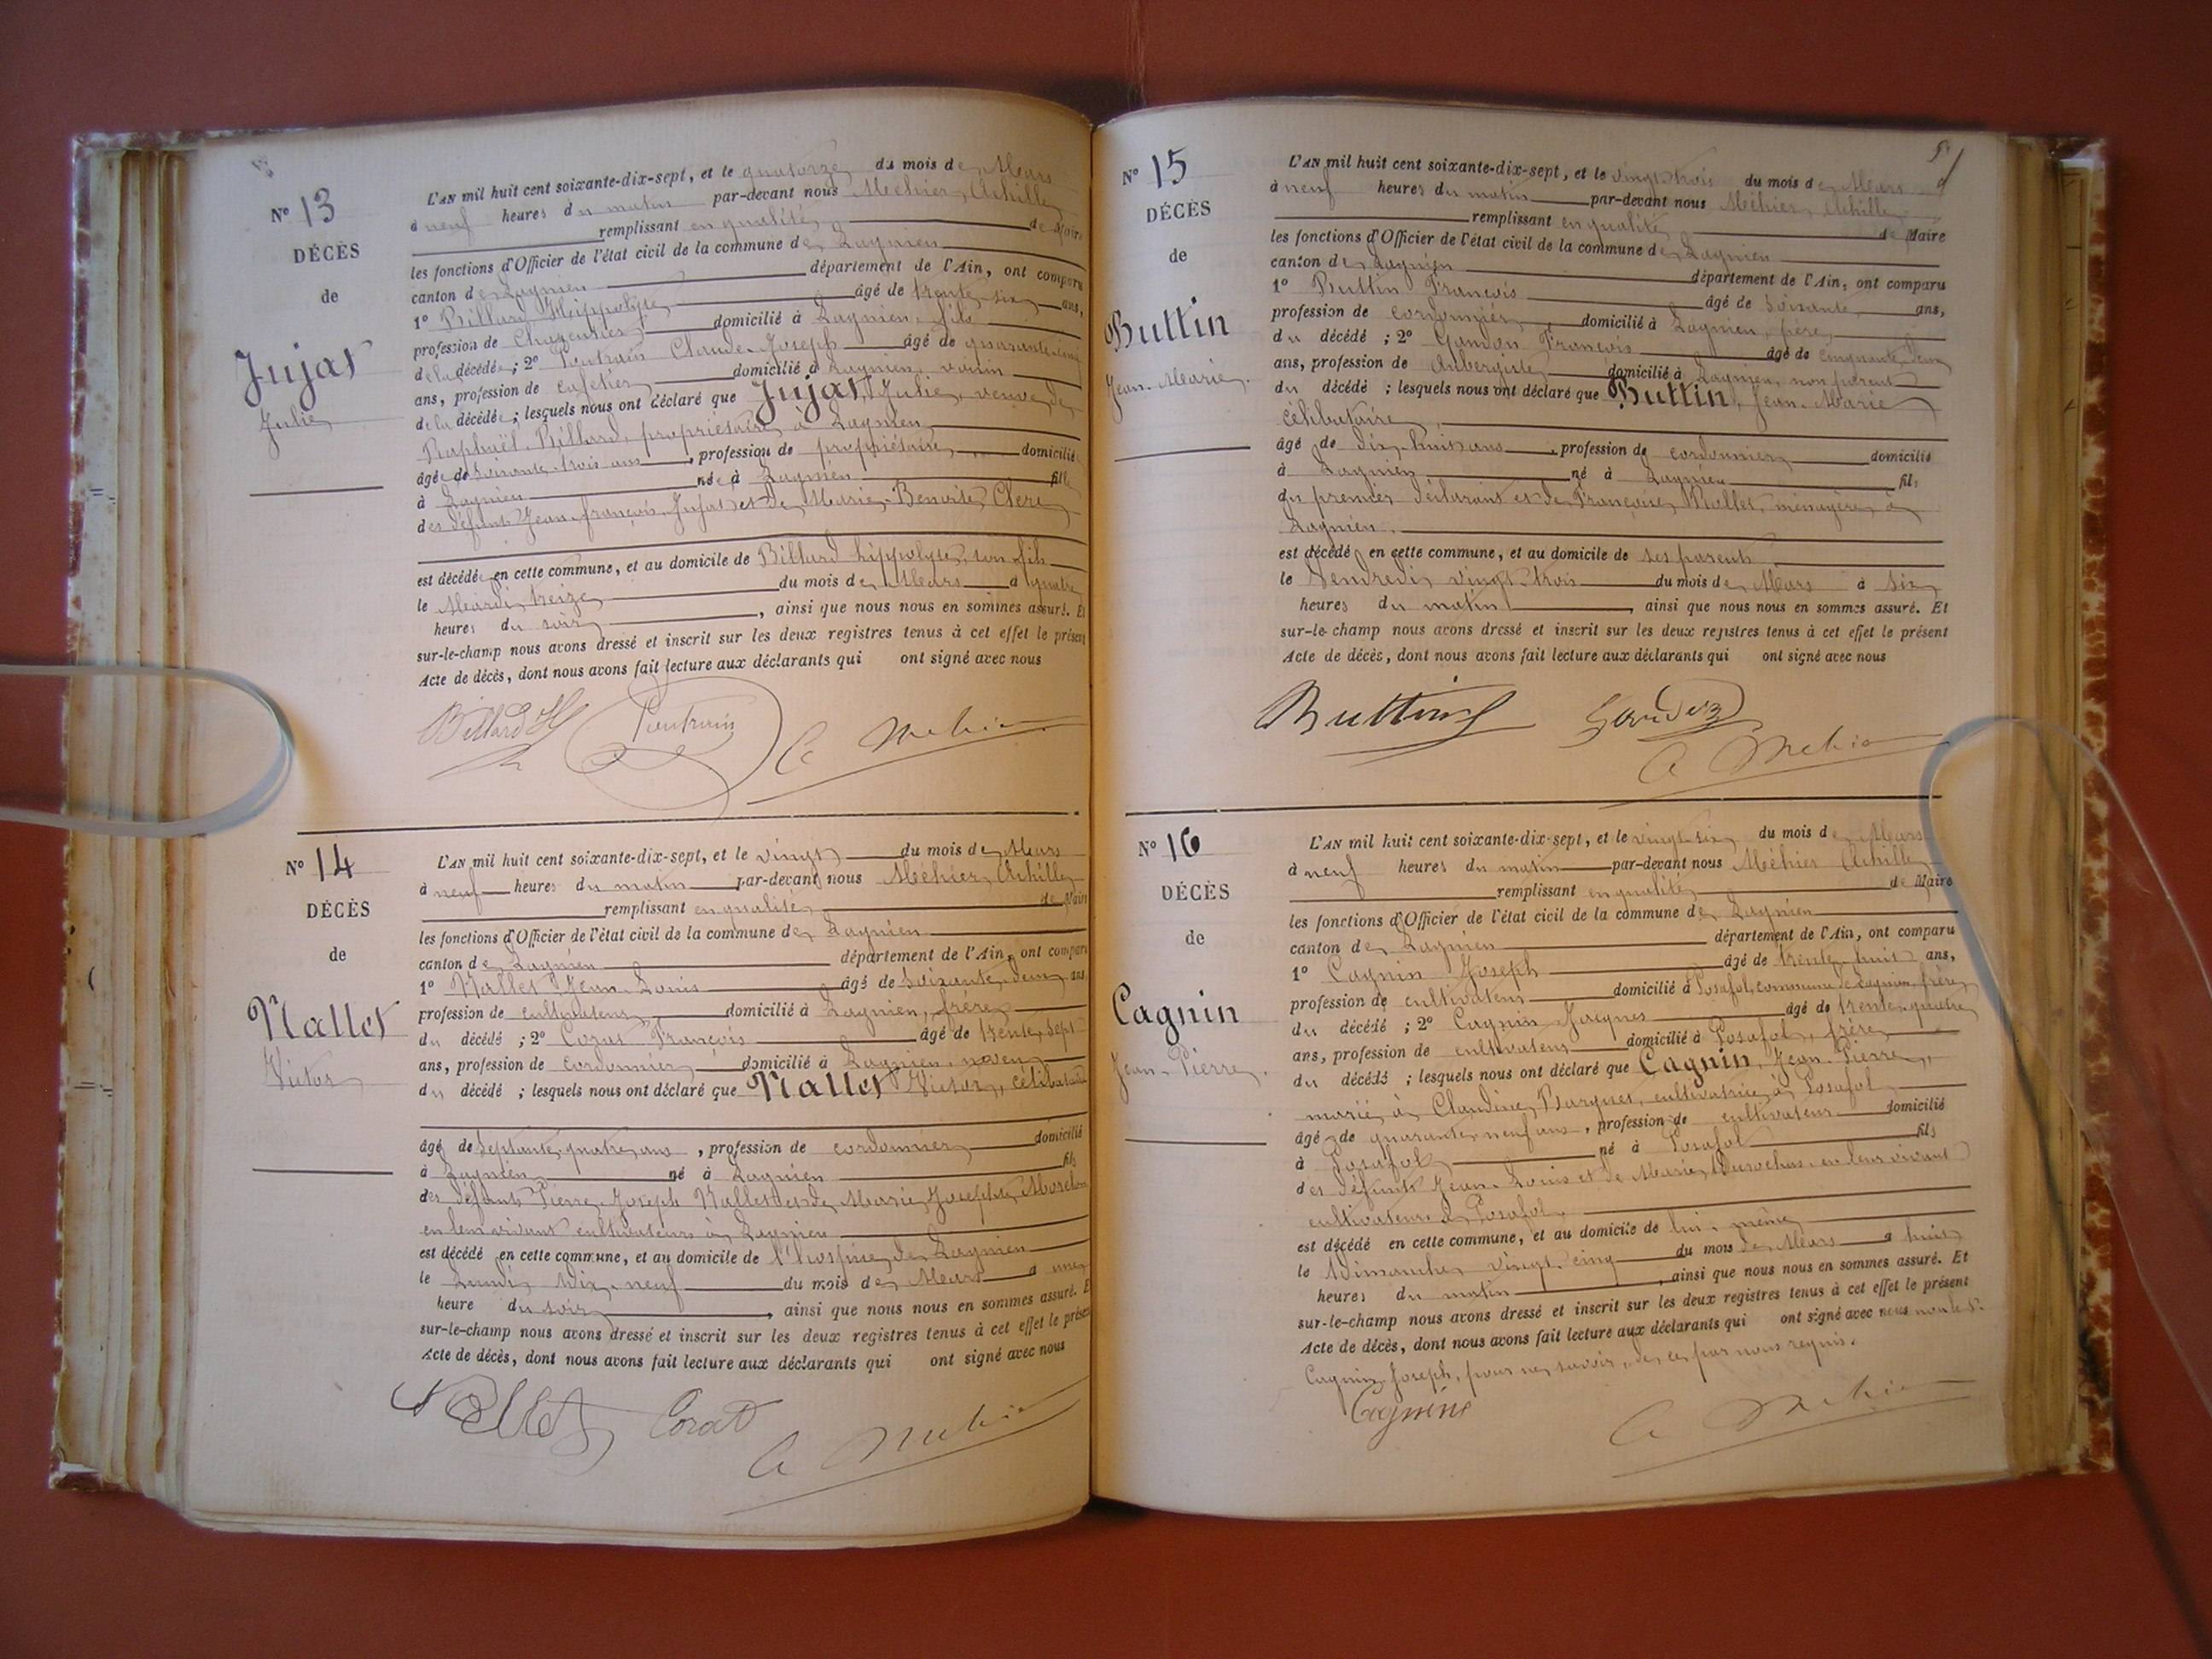 N° 13
DÉCÈS
de
Jujat
Julie
L'AN mil huit cent soixante-dix-sept, et le quatorze du mois de Mars
à neuf heures du matin par-devant nous Méhier Achille
remplissant en qualité de Maire
les fonctions d'Officier de l'état civil de la commune de Lagnieu
canton de Lagnieu département de l'Ain, ont comparu
1° Billard Hippolyte âgé de trente-six ans,
profession de Charpentier domicilié à Lagnieu, fils
de la décédée; 2° Claude-Joseph âgé de quarante-cinq
ans, profession de cafetier domicilié à Lagnieu, voisin
de la décédée; lesquels nous ont déclaré que Jujat, Julie, veuve de
Raphaël Billard, propriétaire à Lagnieu
âgée de soixante-trois ans, profession de propriétaire domiciliée
à Lagnieu née à Lagnieu fille
des défunts Jean-François Jujat et de Marie-Benoite
est décédée en cette commune, et au domicile de Billard hippolyte, son fils
le Mardi treize du mois de Mars à quatre
heures du soir, ainsi que nous nous en sommes assuré. Et
sur-le-champ nous avons dressé et inscrit sur les deux registres tenus à cet effet le présent
Acte de décès, dont nous avons fait lecture aux déclarants qui ont signé avec nous
Billard H A Mehier
N° 14
DÉCÈS
de
Nallet
Victor
L'AN mil huit cent soixante-dix-sept, et le vingt du mois de Mars
à neuf heures du matin par-devant nous Méhier Achille
remplissant en qualité de Maire
les fonctions d'Officier de l'état civil de la commune de Lagnieu
canton de Lagnieu département de l'Ain, ont comparu
1° Nallet Jean-Louis âgé de soixante-deux ans
profession de cultivateur domicilié à Lagnieu, frère
du décédé; 2° Corat François âgé de trente-sept
ans, profession de cordonnier domicilié à Lagnieu, neveu
du décédé; lesquels nous ont déclaré que Nallet Victor, célibataire
âgé de septante-quatre ans, profession de cordonnier domicilié
à Lagnieu né à Lagnieu fils
des défunts Pierre-Joseph Nallet et de Marie Josephte
en leur vivant cultivateurs à Lagnieu
est décédé en cette commune, et au domicile de l'hospice de Lagnieu
le Lundi dix-neuf du mois de Mars à une
heure du soir, ainsi que nous nous en sommes assuré. Et
sur-le-champ nous avons dressé et inscrit sur les deux registres tenus à cet effet le présent
Acte de décès, dont nous avons fait lecture aux déclarants qui ont signé avec nous
Nallet Corat A Mehier
N° 15
DÉCÈS
de
Buttin
Jean-Marie.
L'AN mil huit cent soixante-dix-sept, et le vingt-trois du mois de Mars
à neuf heures du matin par-devant nous Méhier Achille
remplissant en qualité de Maire
les fonctions d'Officier de l'état civil de la commune de Lagnieu
canton de Lagnieu département de l'Ain, ont comparu
1° Buttin François âgé de soixante ans,
profession de cordonnier, domicilié à Lagnieu, père
du décédé; 2° François âgé de cinquante-deux
ans, profession de Aubergiste domicilié à Lagnieu, non parent
du décédé; lesquels nous ont déclaré que Buttin, Jean-Marie
célibataire,
âgé de dix-huit ans, profession de cordonnier domicilié
à Lagnieu né à Lagnieu fils
du premier déclarant et de Françoise Mollet, ménagère à
Lagnieu.
est décédé en cette commune, et au domicile de ses parents
le Vendredi vingt-trois du mois de Mars à six
heures du matin, ainsi que nous nous en sommes assuré. Et
sur-le-champ nous avons dressé et inscrit sur les deux registres tenus à cet effet le présent
Acte de décès, dont nous avons fait lecture aux déclarants qui ont signé avec nous
Buttin A Mehier
N° 16
DÉCÈS
de
Cagnin
Jean-Pierre.
L'AN mil huit cent soixante-dix-sept, et le vingt-six du mois de Mars
à neuf heures du matin par-devant nous Méhier Achille
remplissant en qualité de Maire
les fonctions d'Officier de l'état civil de la commune de Lagnieu
canton de Lagnieu département de l'Ain, ont comparu
1° Cagnin Joseph âgé de trente-huit ans,
profession de cultivateur domicilié à Posafol, commune de Lagnieu, frère
du décédé; 2° Cagnin Jacques âgé de trente-quatre
ans, profession de cultivateur domicilié à Posafol, frère
du décédé; lesquels nous ont déclaré que Cagnin, Jean-Pierre,
marié à Claudine cultivatrice à Posafol
âgé de quarante-neuf ans, profession de cultivateur domicilié
à Posafol né à Posafol fils
des défunts Jean-Louis et de Marie en leur vivant
cultivateurs à Posafol.
est décédé en cette commune, et au domicile de lui-même
le Dimanche vingt-cinq du mois de Mars à huit
heures du matin, ainsi que nous nous en sommes assuré. Et
sur-le-champ nous avons dressé et inscrit sur les deux registres tenus à cet effet le présent
Acte de décès, dont nous avons fait lecture aux déclarants qui ont signé avec nous non le Sr
Cagnin Joseph, pour ne savoir, de ce par nous requis.
Cagnin A Mehier